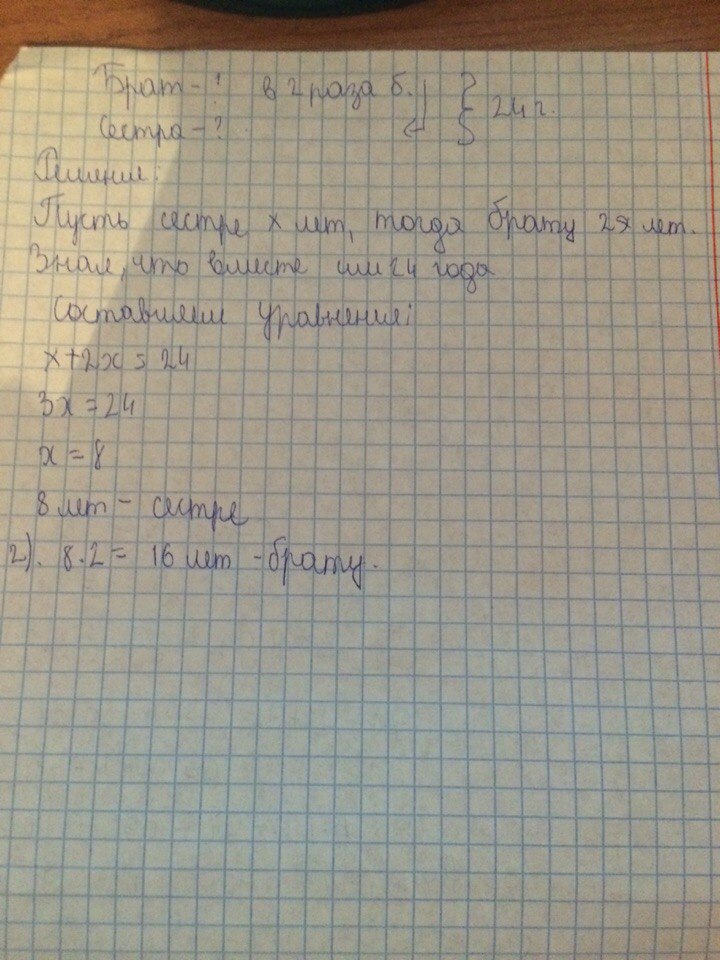 Брат - ? в 2 раза б. } 24 г.
Сестра - ?
Решение:
Пусть сестре х лет, тогда брату 2х лет.
Зная, что вместе им 24 года
составляем уравнение:
х+2х = 24
3х = 24
х = 8
8 лет - сестре
2). 8·2 = 16 лет - брату.